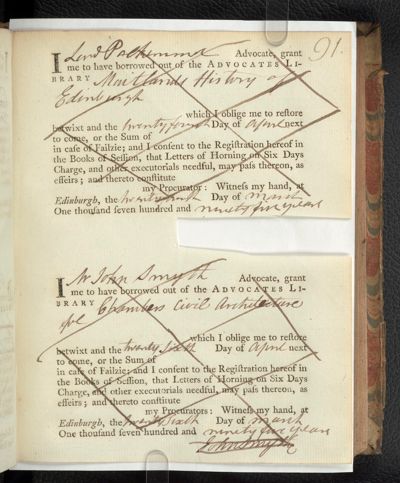 91.
I Lord Polkemmet Advocate, grant
me to have borrowed out of the ADVOCATES LI-
BRARY Maitlands History of
Edinburgh
which I oblige me to restore
betwixt and the Day of April next
to come, or the Sum of
in case of Failzie; and I consent to the Registration hereof in
the Books of Session, that Letters of Horning on Six Days
Charge, and other executorials needful, may pass thereon, as
effeirs; and thereto constitute
my Procurator: Witness my hand, at
Edinburgh, the Day of March
One thousand seven hundred and ninety five years
I Mr John Smyth Advocate, grant
me to have borrowed out of the ADVOCATES LI-
BRARY Chambers Civil Architecture
which I oblige me to restore
betwixt and the twenty sixth Day of April next
to come, or the Sum of
in case of Failzie; and I consent to the Registration hereof in
the Books of Session, that Letters of Horning on Six Days
Charge, and other executorials needful, may pass thereon, as
effeirs; and thereto constitute
my Procurators: Witness my hand, at
Edinburgh, the twenty sixth Day of March
One thousand seven hundred and ninety five years
John Smyth